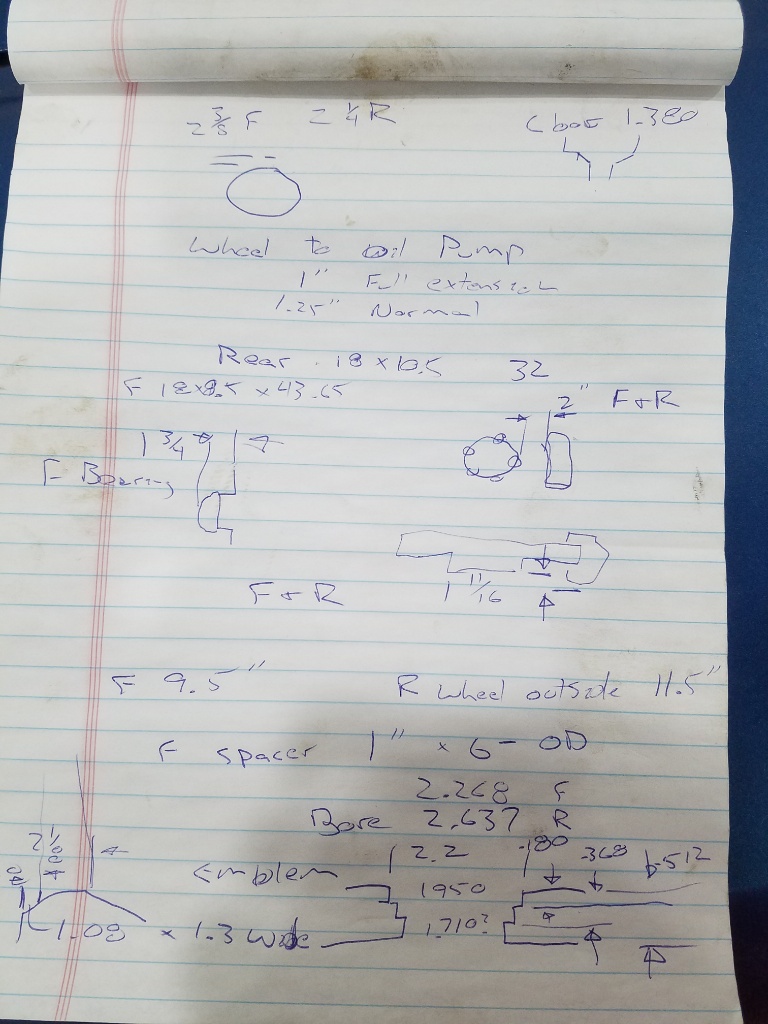 2 3/8 F 2 1/4 R C bore 1.380
Wheel to oil Pump
1" Full extension
1.25" Normal
Rear 18 x 10.5 32
F 18x9.5 x 43.65
2" F+R
1 3/4
F Bearing
1 11/16
F + R
F 9.5" R wheel outside 11.5"
F spacer 1" x 6- OD
2.268 F
Bore 2.637 R
2 1/8 2.2 .180 .368 .512
Emblem 1950
1.08 x 1.3 wide 1.710?